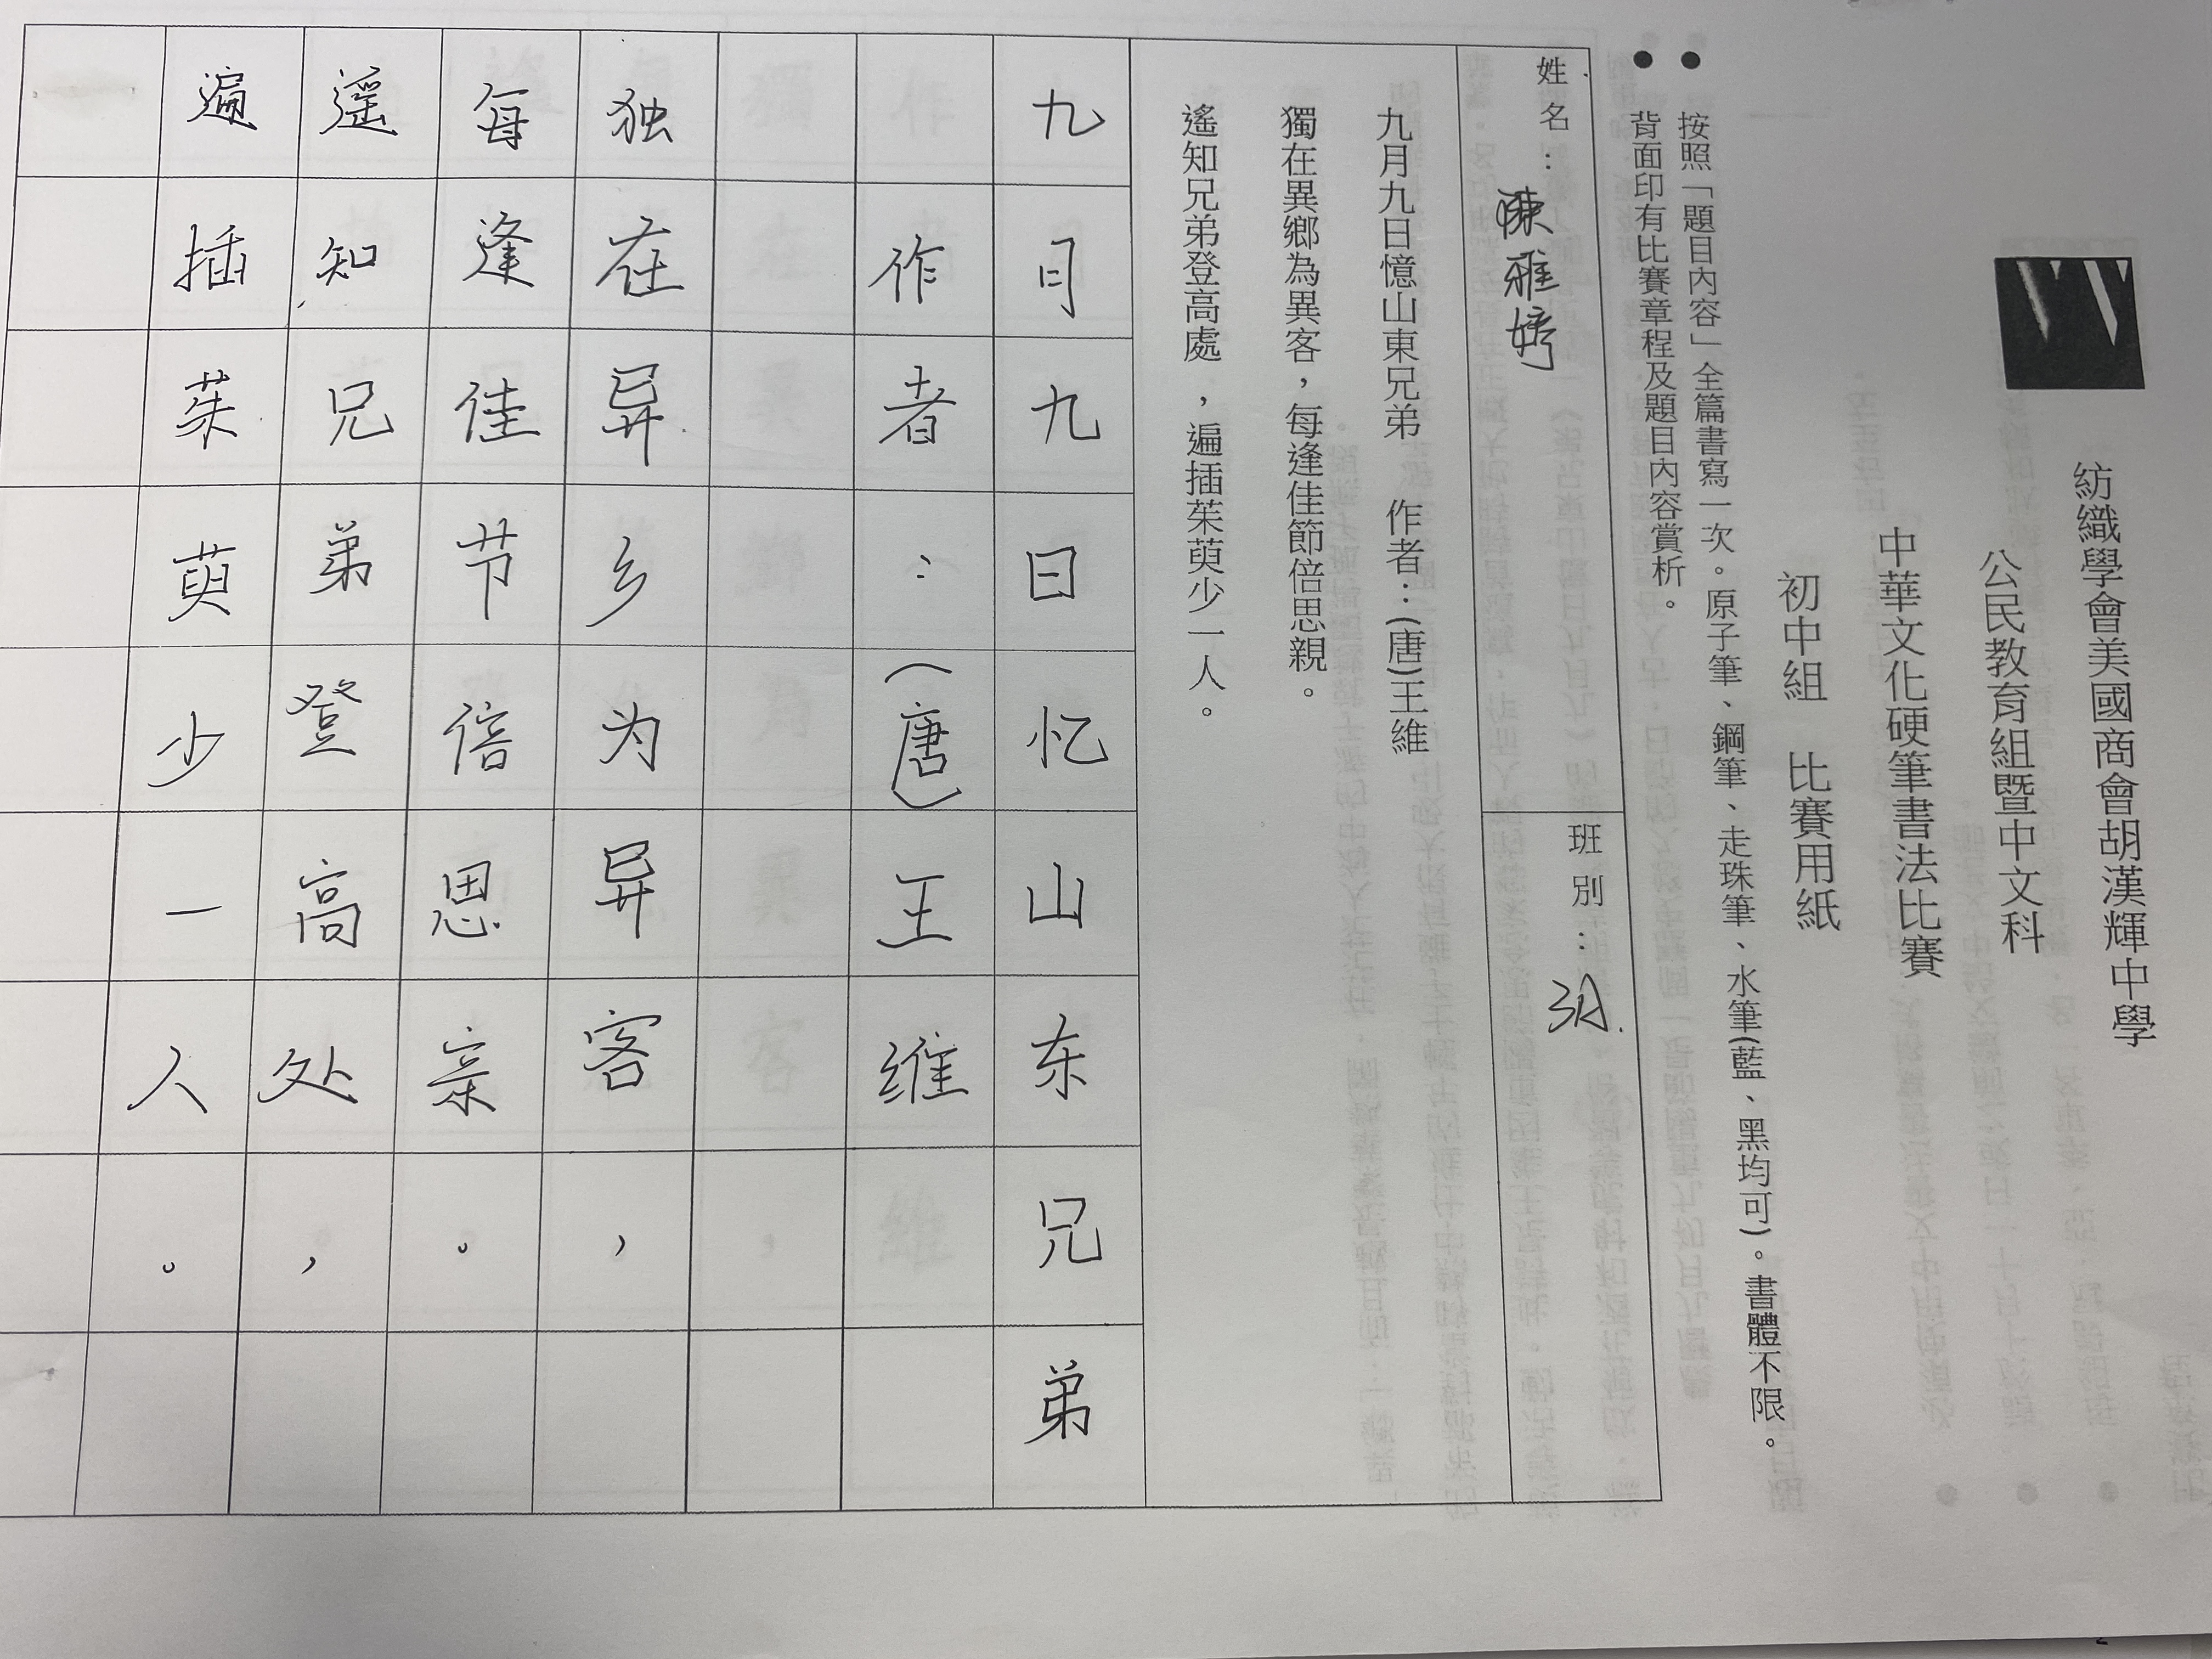 紡織學會美國商會胡漢輝中學
公民教育組暨中文科
中華文化硬筆書法比賽
初中組 比賽用紙
● 按照「題目內容」全篇書寫一次。原子筆、鋼筆、走珠筆、水筆(藍、黑均可)。書體不限。
● 背面印有比賽章程及題目內容賞析。
姓名:陳雅婷
班別:3A.
九月九日憶山東兄弟 作者:(唐)王維
獨在異鄉為異客,每逢佳節倍思親。
遙知兄弟登高處,遍插茱萸少一人。
九月九日忆山东兄弟
作者:(唐)王维
独在异乡为异客,
每逢佳节倍思亲。
遥知兄弟登高处,
遍插茱萸少一人。